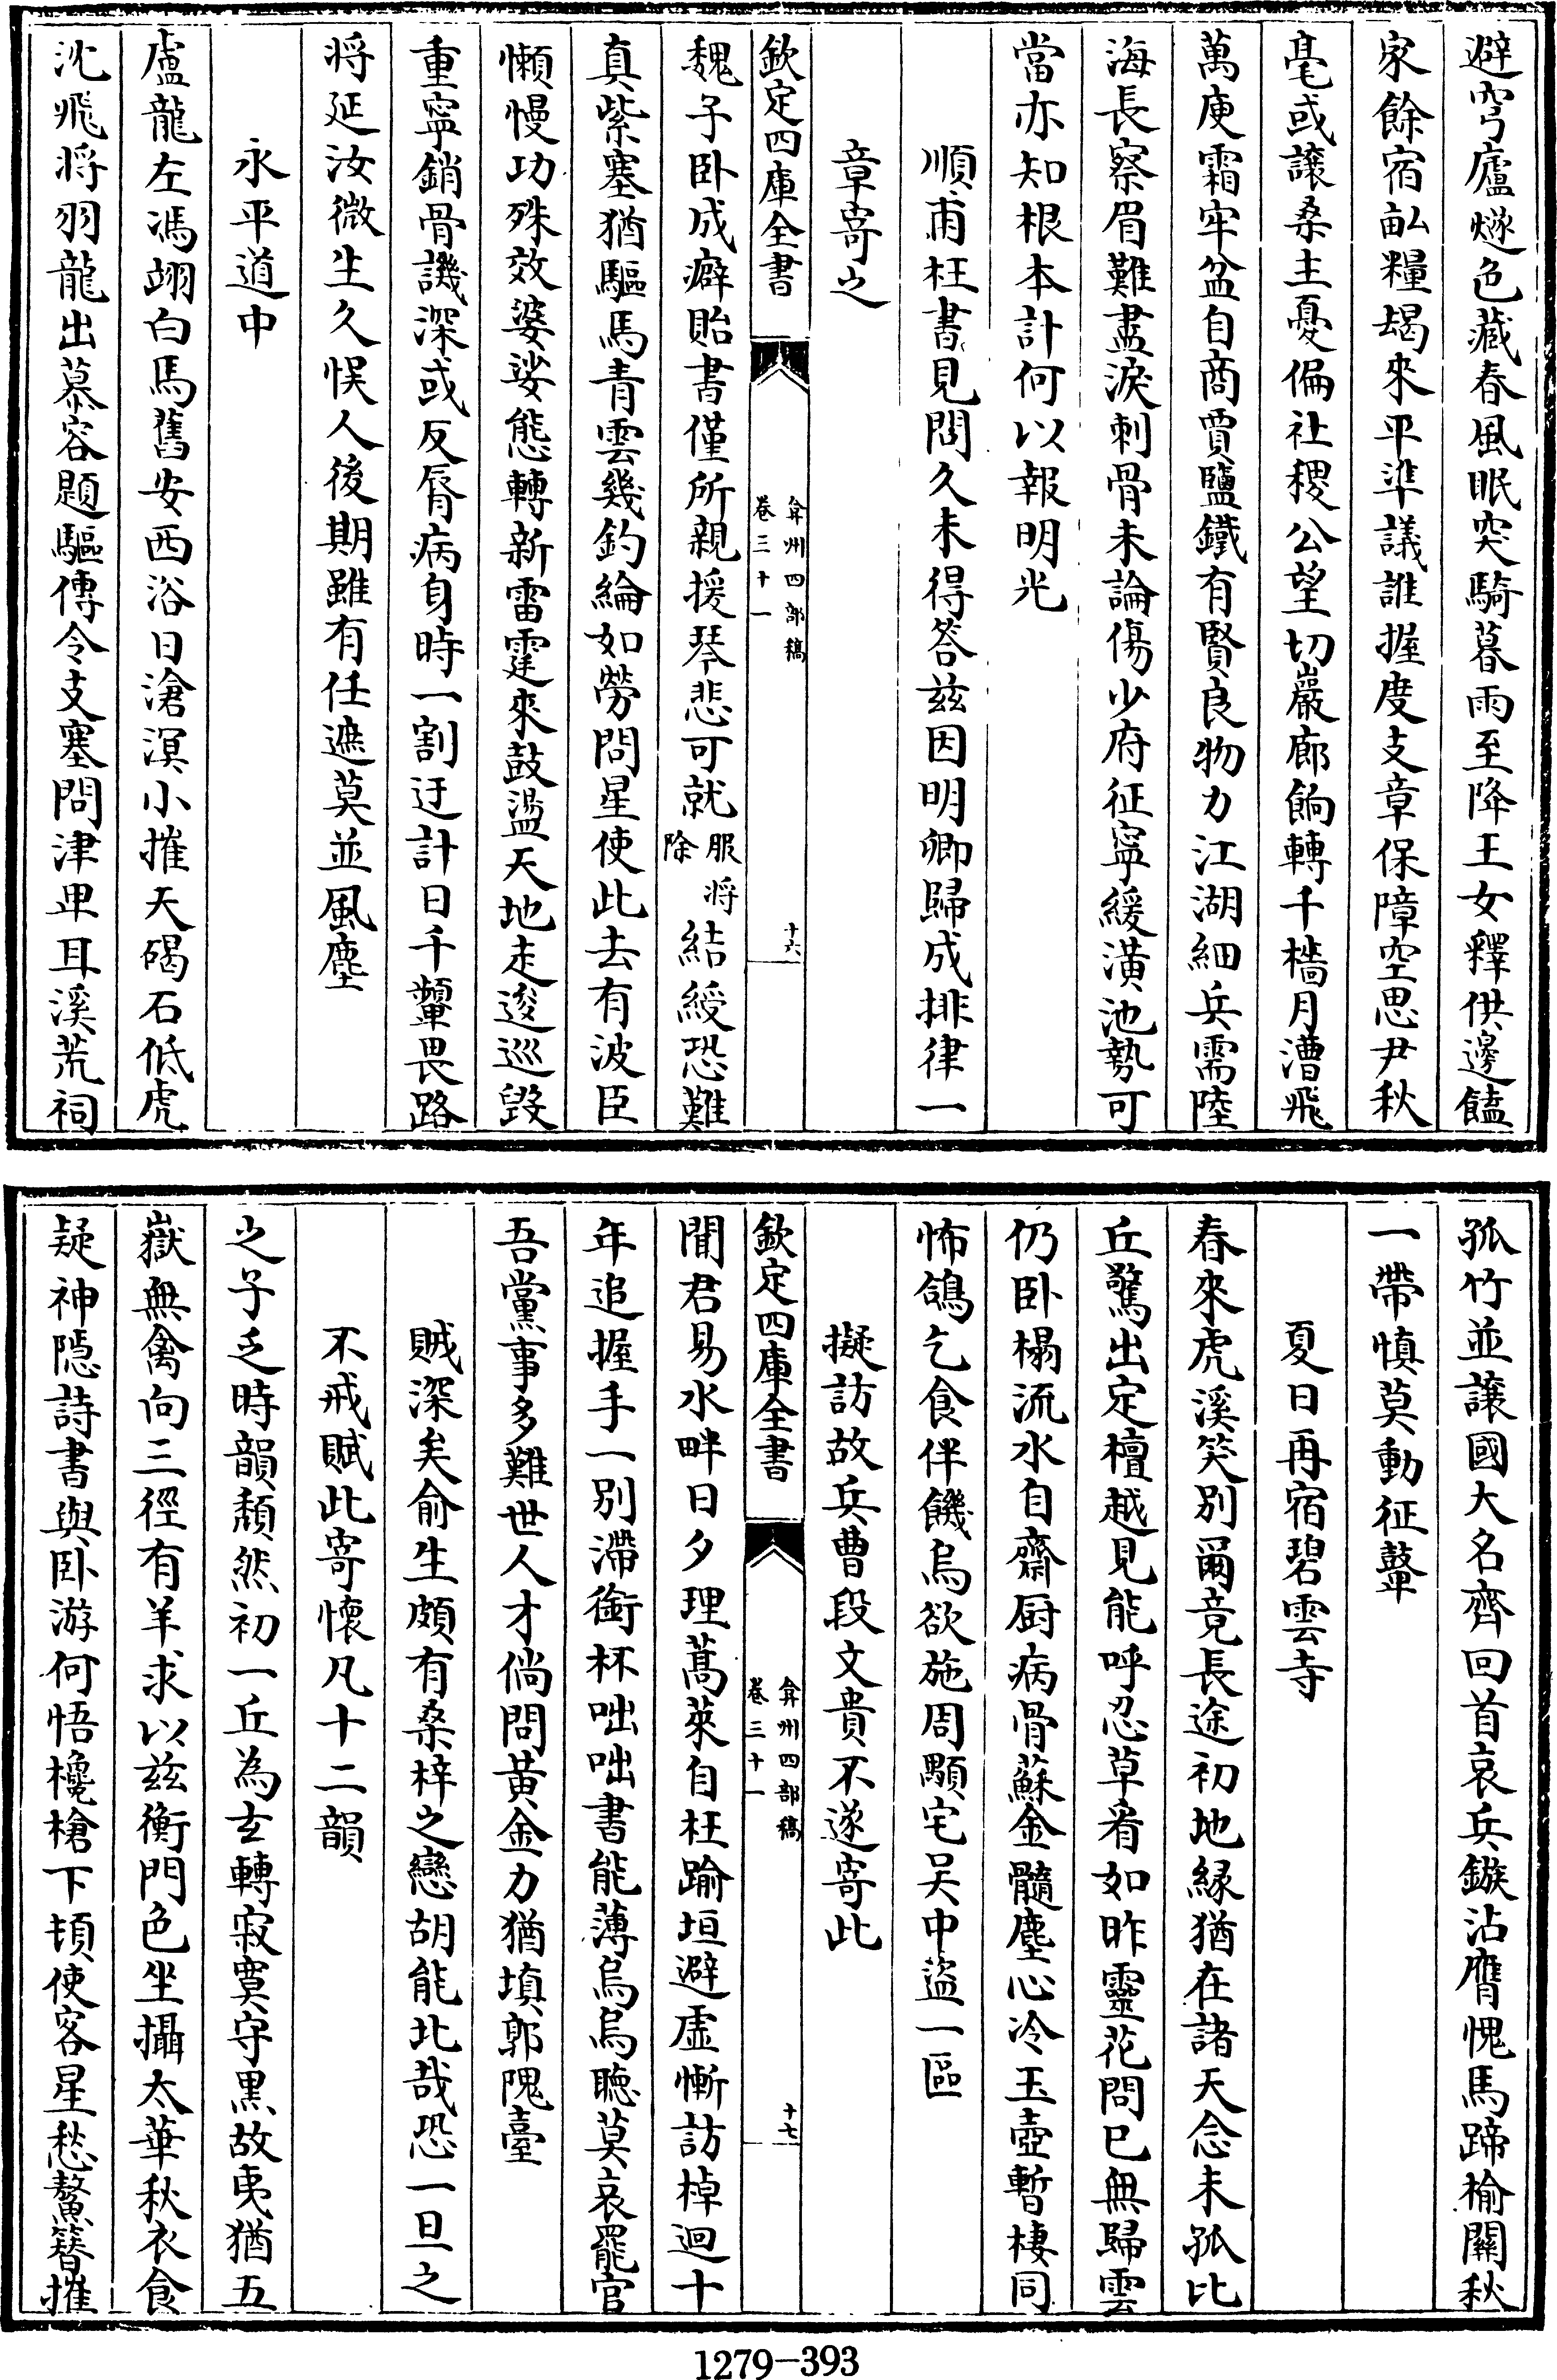 避穹廬燧色藏春風眠突騎暮雨至降王女釋供邊饁
家餘宿畆糧朅來平準議誰握度支章保障空思尹秋
毫或讓桑主憂偏社稷公望切巖廊餉轉千檣月漕飛
萬庾霜牢盆自商賈鹽鐵有賢良物力江湖細兵需陸
海長察眉難盡淚刺骨未論傷少府征寧緩潢池勢可
當亦知根本計何以報明光
順甫枉書見問久未得答兹因明卿歸成排律一
章寄之
欽定四庫全書
弇州四部稿
卷三十一
十六
魏子卧成癖貽書僅所親援琴悲可就服将除結綬恐難
真紫塞猶驅馬青雲幾釣綸如勞問星使此去有波臣
懶慢功殊效婆娑態轉新雷霆來鼓盪天地走逡巡毀
重寧銷骨譏深或反脣病身時一割迂計日千顰畏路
将延汝微生久悞人後期雖有任遮莫並風塵
永平道中
盧龍左馮翊白馬舊安西浴日滄溟小摧天碣石低虎
沈飛将羽龍出慕容題驅傳令支塞問津卑耳溪荒祠
孤竹並讓國大名齊回首哀兵鏃沾膺愧馬蹄榆關秋
一帶慎莫動征鼙
夏日再宿碧雲寺
春來虎溪笑別爾竟長途初地緣猶在諸天念未孤比
丘驚出定檀越見能呼忍草看如昨靈花問已無歸雲
仍卧榻流水自齋厨病骨蘇金髓塵心冷玉壺暫棲同
怖鴿乞食伴饑烏欲施周顒宅吴中盜一區
擬訪故兵曹段文貴不遂寄此
欽定四庫全書
弇州四部稿
卷三十一
十七
聞君易水畔日夕理蒿萊自枉踰垣避虛慚訪棹迴十
年追握手一別滯銜杯咄咄書能薄烏烏聽莫哀罷官
吾黨事多難世人才倘問黃金力猶填郭隗臺
賊深矣俞生頗有桑梓之戀胡能北哉恐一旦之
不戒賦此寄懷凡十二韻
之子乏時韻頹然初一丘為玄轉寂寞守黑故夷猶五
嶽無禽向三徑有羊求以兹衡門色坐攝太華秋衣食
疑神隠詩書與卧游何悟欃槍下頓使客星愁鰲簪摧
1279-393